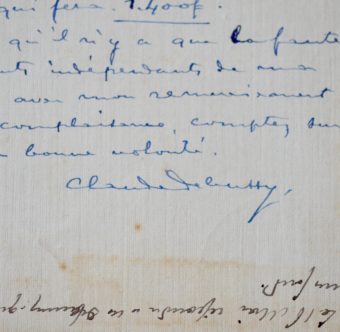 qui fera 1.400f.
qu'il n'y a que la faute
ts indépendants de ma
avec mon remerciement
complaisance, comptez sur
bonne volonté.
Claude Debussy,
Le 18 Mai répondu